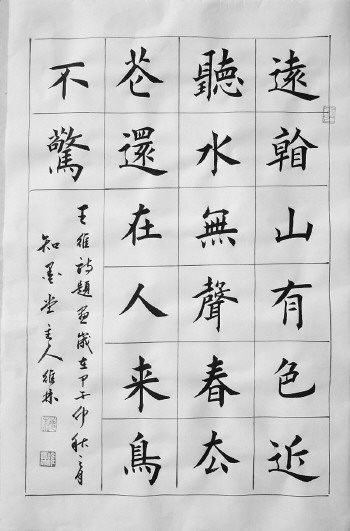 遠看山有色近
聽水無聲春厺
芲還在人来鳥
不驚
王維詩題画歲在甲子仲秋之月
知墨堂主人維林